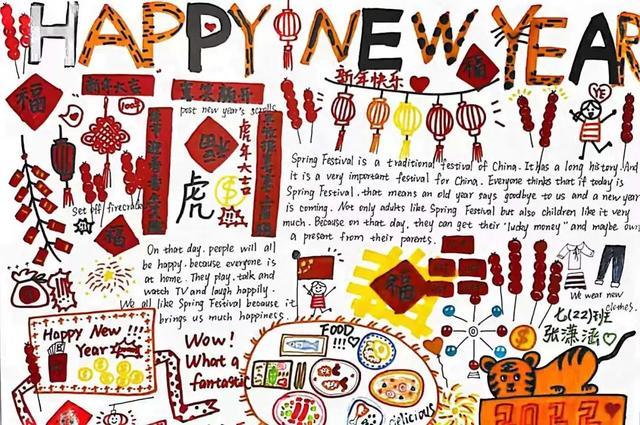 HAPPY NEW YEAR
福
新年大吉
100%
post new year's scrolls
虎年大吉
福
虎
新年快乐
福
YE
Set off firecrackers
福
Spring Festival is a traditional festival of China. It has a long history. And
it is a very important festival for China. Everyone thinks that if today is
Spring Festival. that means an old year says goodbye to us and a new year
is coming. Not only adults like Spring Festival but also children like it very
much. Because on that day, they can get their "lucky money" and maybe own
a present from their parents.
On that day. people will all
be happy. because everyone is
at home. They play. talk and
watch TV and laugh happily.
We all like Spring Festival because it
brings us much happiness.
福
We wear new
clothes.
七(22)班
张潇涵
Happy New !!!
Year
Wow!
What a
fantastic
FOOD
!!!
delicious
2022